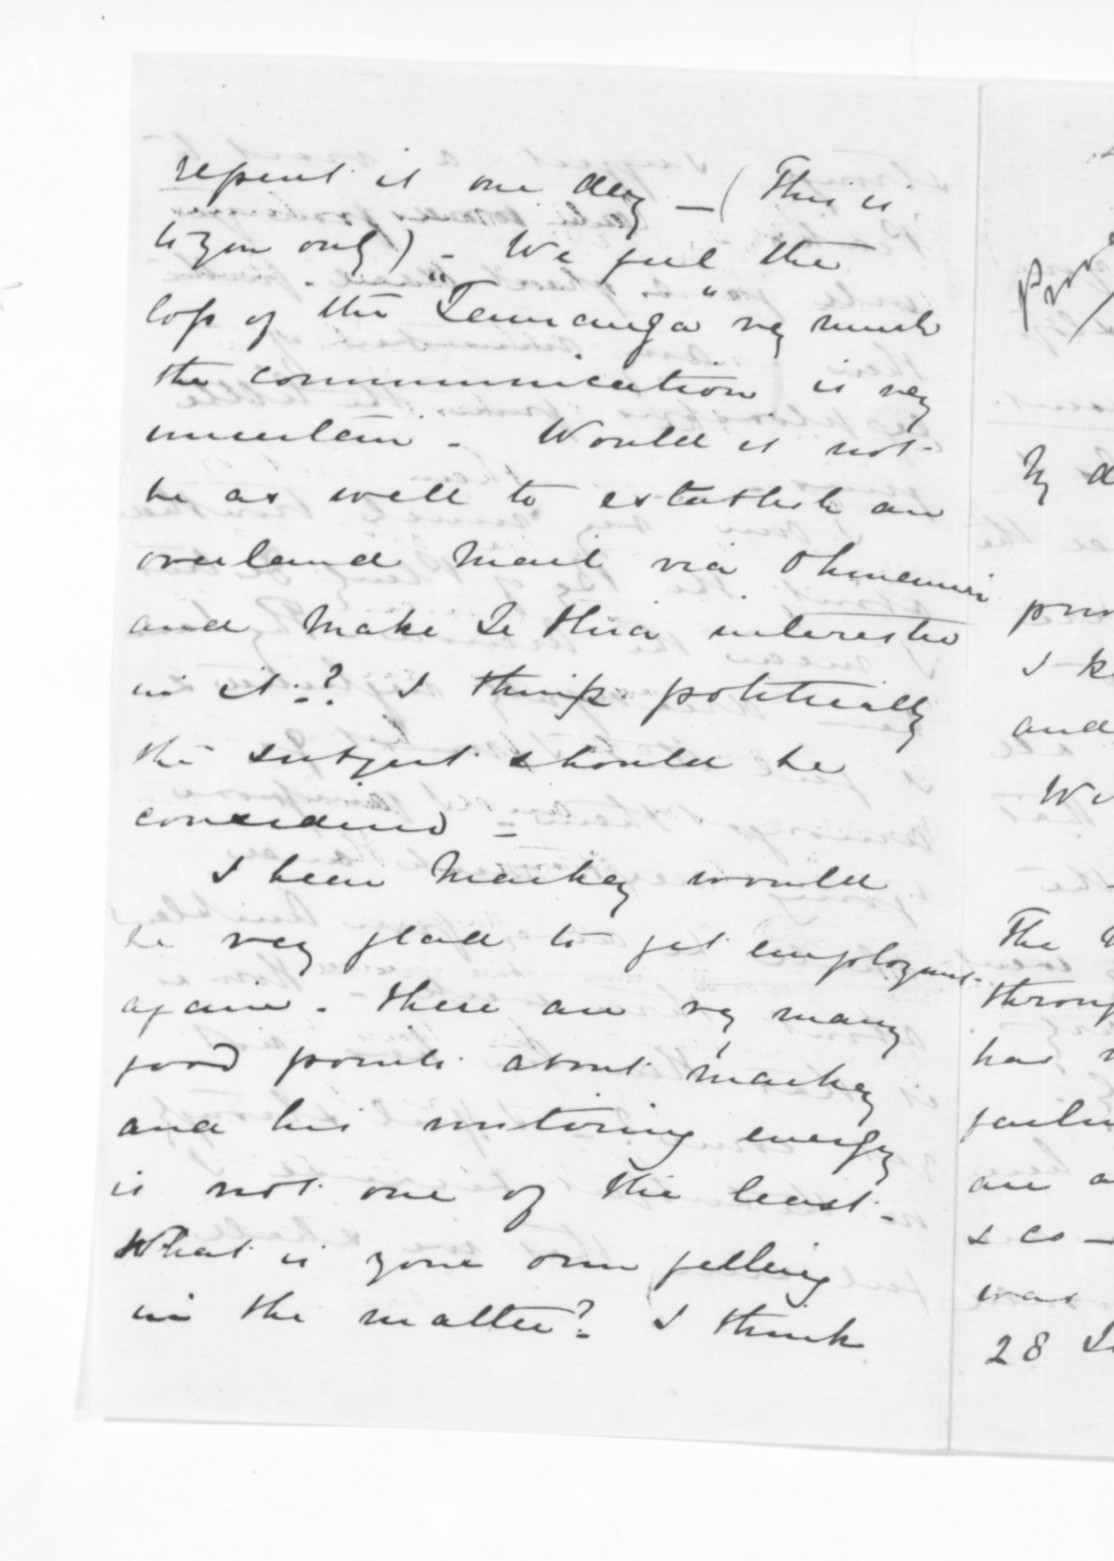 repent it one day — (This is
to you only) - We feel the
loss of the "Tauranga" vy much
the communication is very
uncertain - Would it not
be as well to establish an
overland mail via Ohinemuri
and make Te Hira interested
in it? I think politically
the subject should be
considered -
I hear Mackay would
be very glad to get employment
again - there are vy many
good points about Mackay
and his untiring energy
is not one of the least -
What is your own feeling
in the matter? I think
My d
I k
and
The
throug
has
are a
& co -
was
28